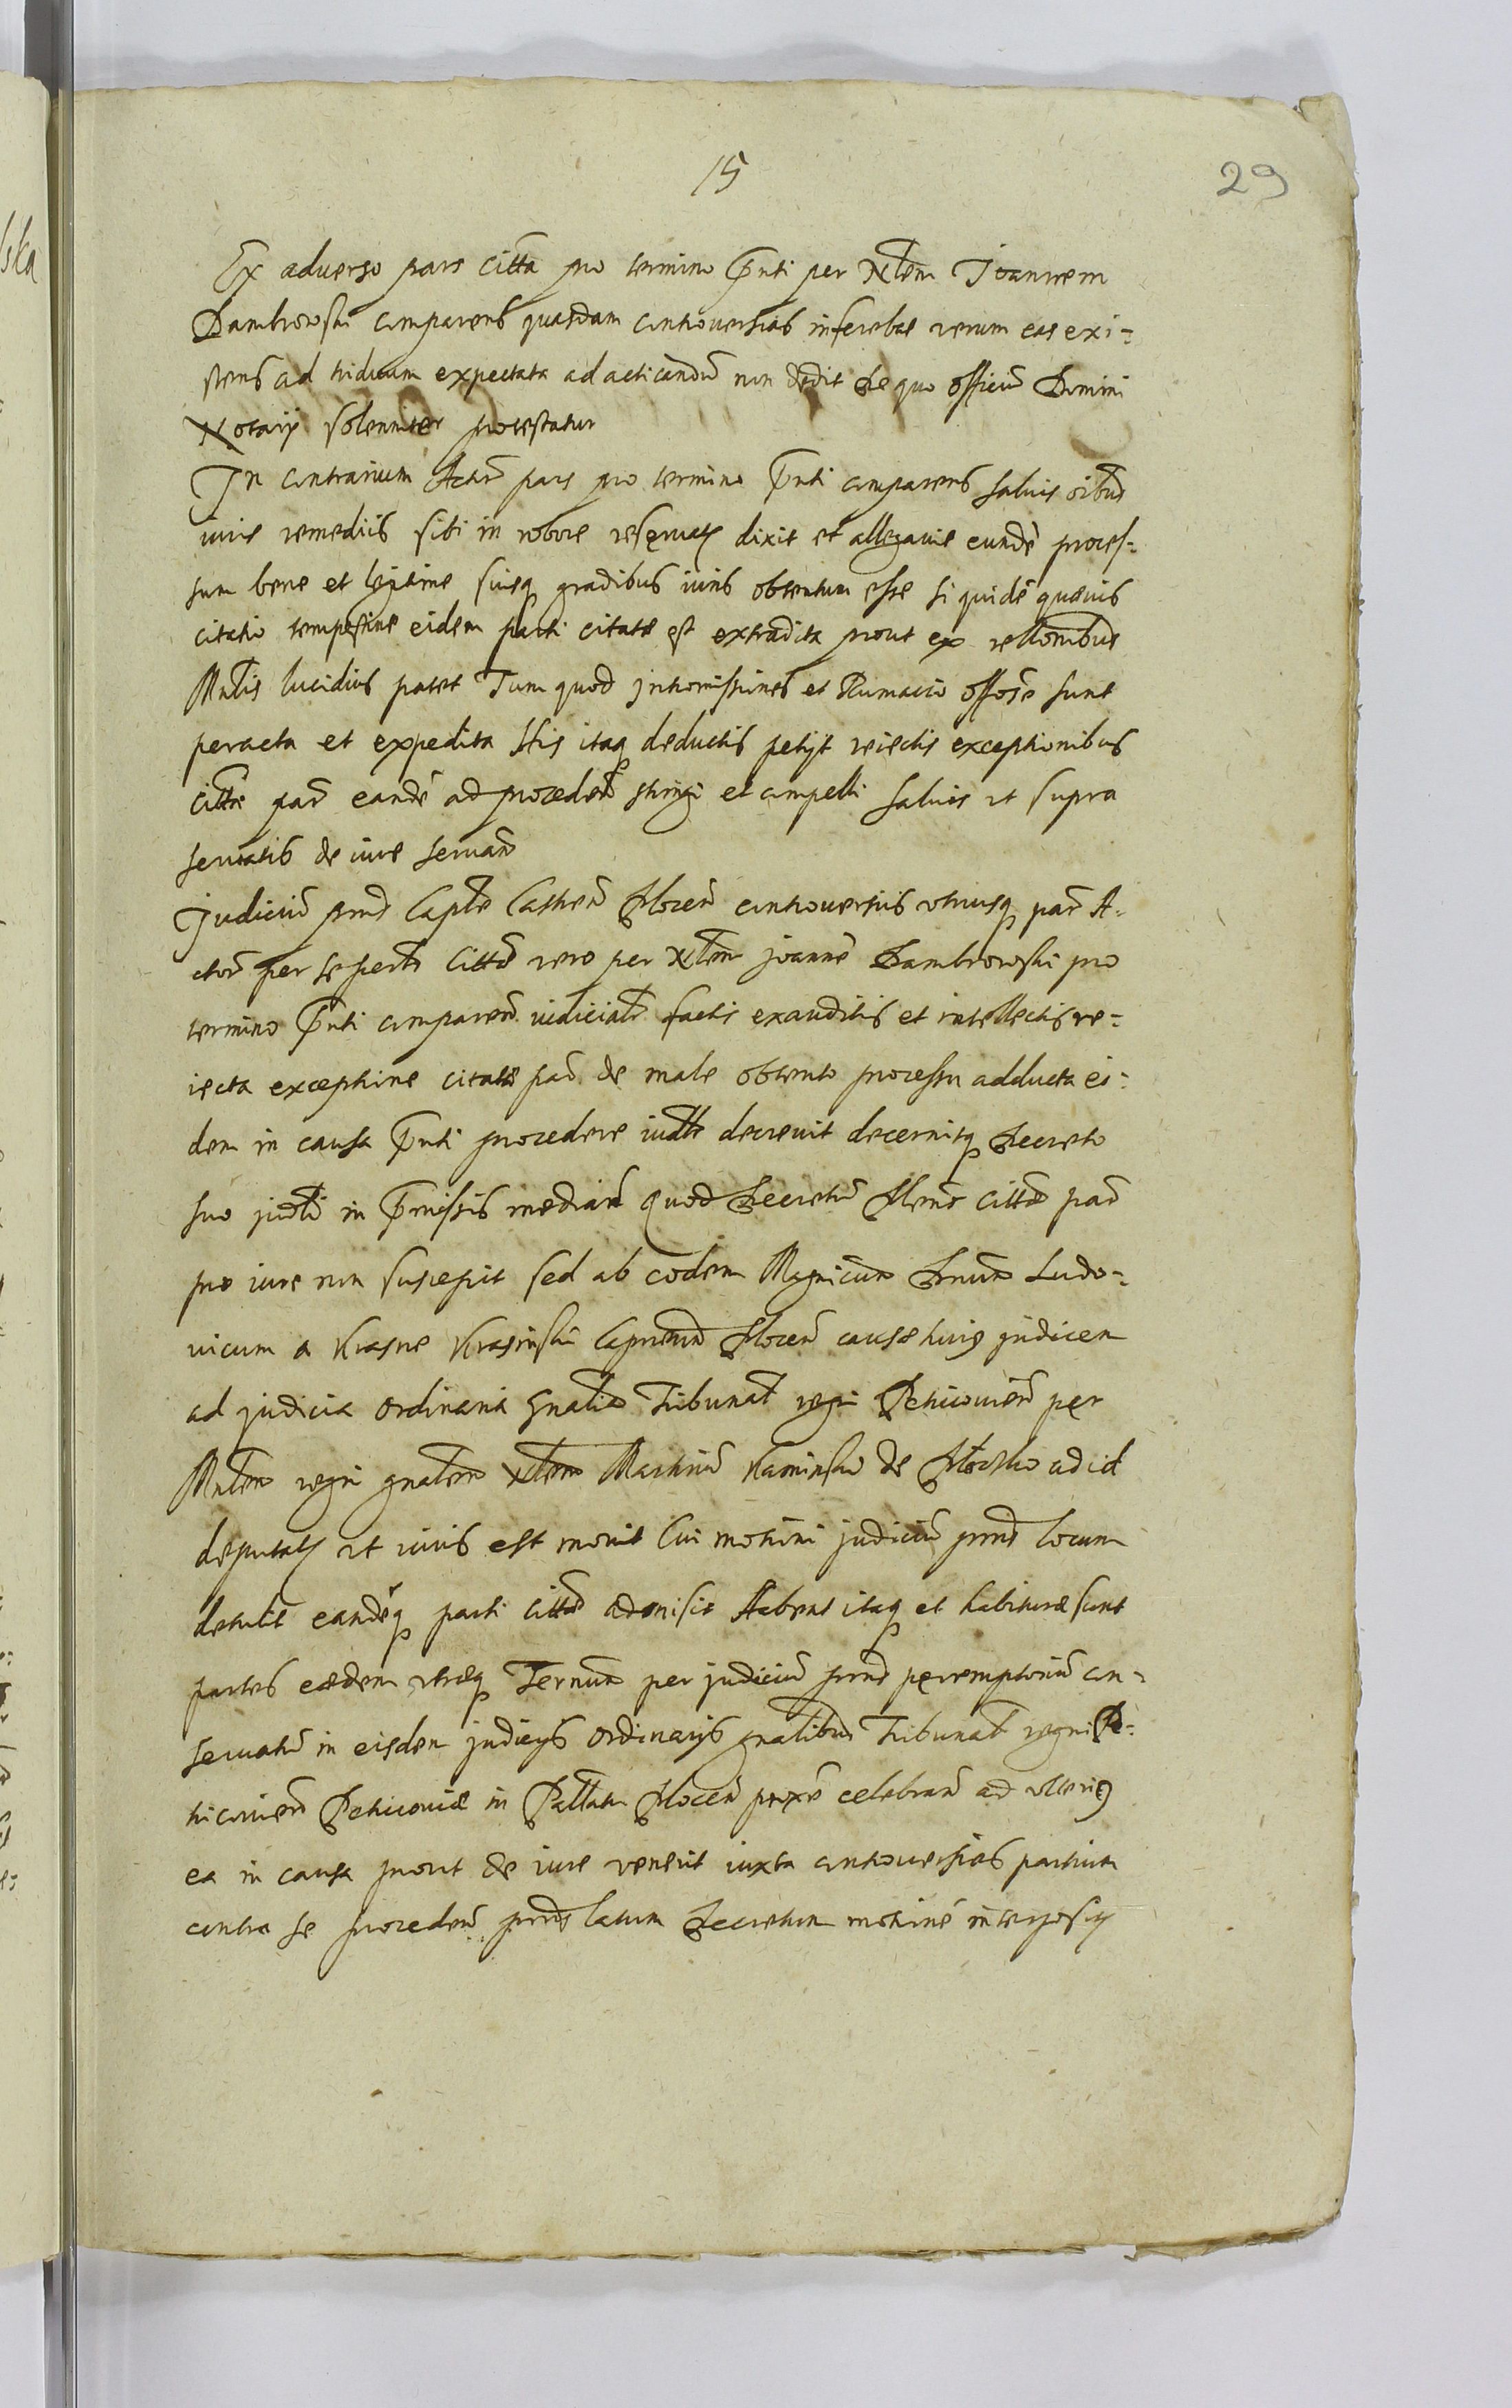 15
29
Ex aduerso pars citta pro termino pñti per Nłem Joannem
Dambrowski comparens quasdam controuersias inferebat verum eas exi-
stens ad triduum expectata ad acticandũ non dedit De quo officiũ Domini
Notarij solenniter protestatur
In contrarium Actrũ pars pro termino pñti comparens saluis oibus
iuris remediis sibi in robore reseruatis dixit et allegauit eundẽ proces-
sum bene et legitime suisq gradibus iuris obtentum esse siquidẽ quæuis
citatio tempestiue eidem parti citatæ est extradita prout ex rellonibus
Mnlis lucidius patet Tum quod Intromissiones et Rumatio offose sunt
peracta et expedita His itaq deductis petijt reiectis exceptionibus
cittæ par eandẽ ad procedend stringi et compelli saluis ut supra
seruatis de iure seruañ
Judiciũ pñs Capłe Castreñ Plocen controuersiis vtriusq par A-
ctor per se perst Cittæ vero per Nłem joannẽ Dambrowski pro
termino pñti compareñ iudicialr factis exauditis et intellectis re-
iecta exceptione citatæ par de male obtento processu adducta ei-
dem in causa pñti procedere iudtr decreuit decernitq Decreto
suo judłi in pmissis mediañ Quod Decretũ pñs cittæ par
pro iure non suscepit sed ab eodem Magnicum Dnum Ludo-
uicum a Krasne Krasinski Capneum Plocen causæ huius judicem
ad judicia ordinaria Gnalia Tribunał regni Petricouieñ per
Mnłem regni gnałem Nłem Martinũ Kaminski de Plocsko ad id
deputatũ vt iuris est mouit Cui motioni judiciũ pñs locum
detulit eandẽq parti cittæ admisit Habent itaq et habituræ sunt
partes eædem vtræq Ternum per judiciũ pñs peremptoriũ con-
seruatũ in eisdem judicijs ordinarijs gnalibus Tribunał regni Pe-
tricouieñ Petricouiæ in Pallatũ Plocen proxe celebrañ ad vlterius
ea in causa prout de iure venerit iuxta controuersias partium
contra se procedeñ pñs latum Decretum motionẽ interpositã